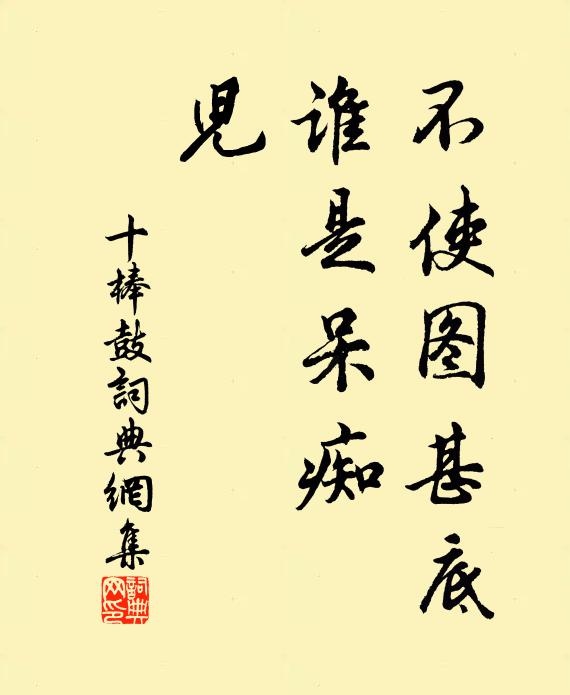 不使图甚底
谁是呆痴
児
十棒鼓詞典網集
詞典
网印